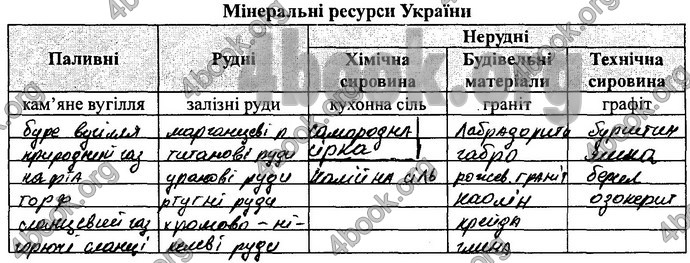 Мінеральні ресурси України
Паливні Рудні Нерудні
Хімічна сировина Будівельні матеріали Технічна сировина
кам’яне вугілля залізні руди кухонна сіль граніт графіт
буре вугілля марганцеві р. самородна лабрадорити бурштин
природний газ титанові руди сірка габро яшма
нафта уранові руди калійна сіль рожев. граніт берил
торф ртутні руди каолін озокерит
сланцевий газ хромово-ні- крейда
горючі сланці келеві руди глина
4book.org